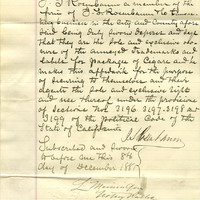 a member of the
firm of
business in the City and County afore
said being duly sworn deposes and says
that they are the sole and exclusive
owners of the annexed Trademarks and
labels for packages of Cigars and he
makes this affidavit for the purpose
of securing to themselves and their
agents the sole and exclusive right
and use thereof under the provisions
of Sections Nos 3196. 3197. 3198 and
3199 of the Political Code of the
State of California
Subscribed and Sworn
to before me this 8th
day of December 1887
Notary Public